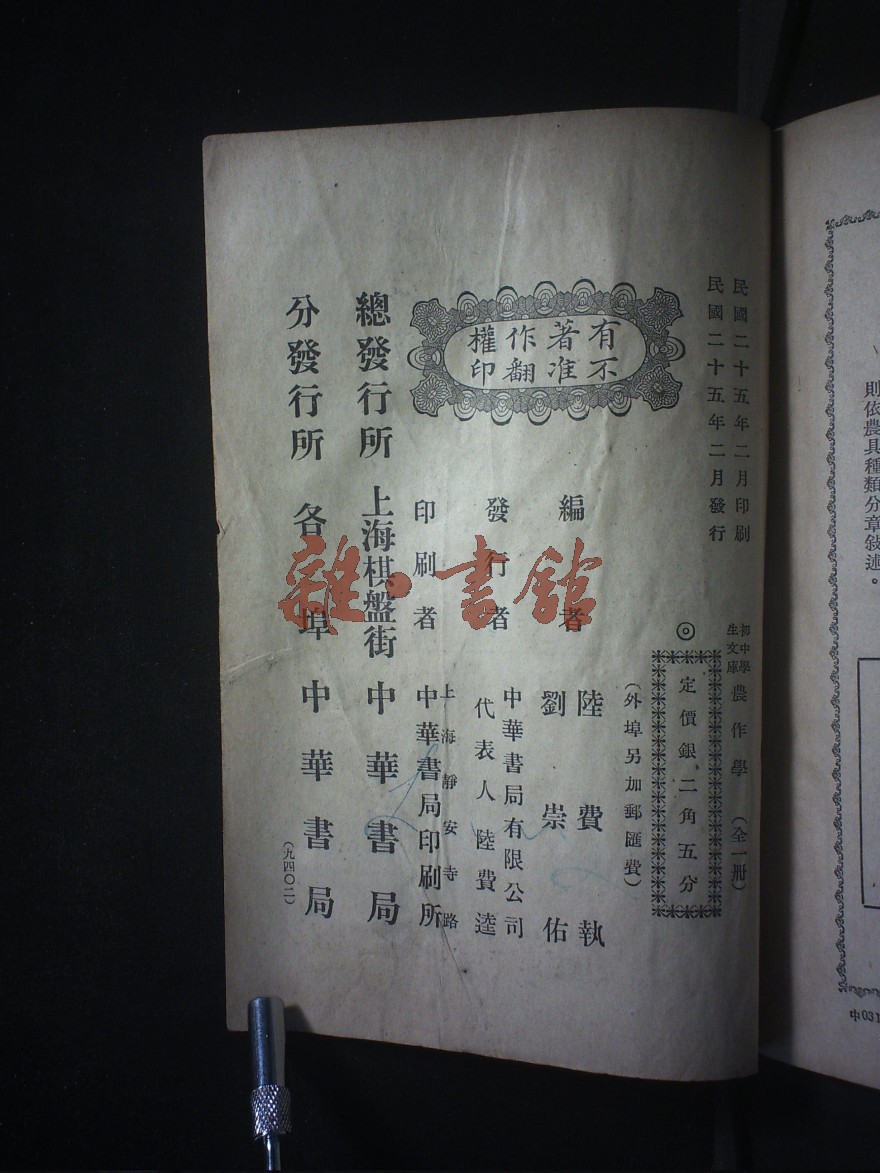 民國二十五年二月印刷
民國二十五年二月發行
初中學生文庫 農作學 (全一冊)
◎定價銀二角五分
(外埠另加郵匯費)
有著作權
不准翻印
編者 陸費執
劉崇佑
發行者 中華書局有限公司
代表人 陸費逵
印刷者 上海靜安寺路
中華書局印刷所
總發行所 上海棋盤街 中華書局
分發行所 各埠 中華書局
(九四〇二)
雜·書館
則依農具種類分章敍述。
中031